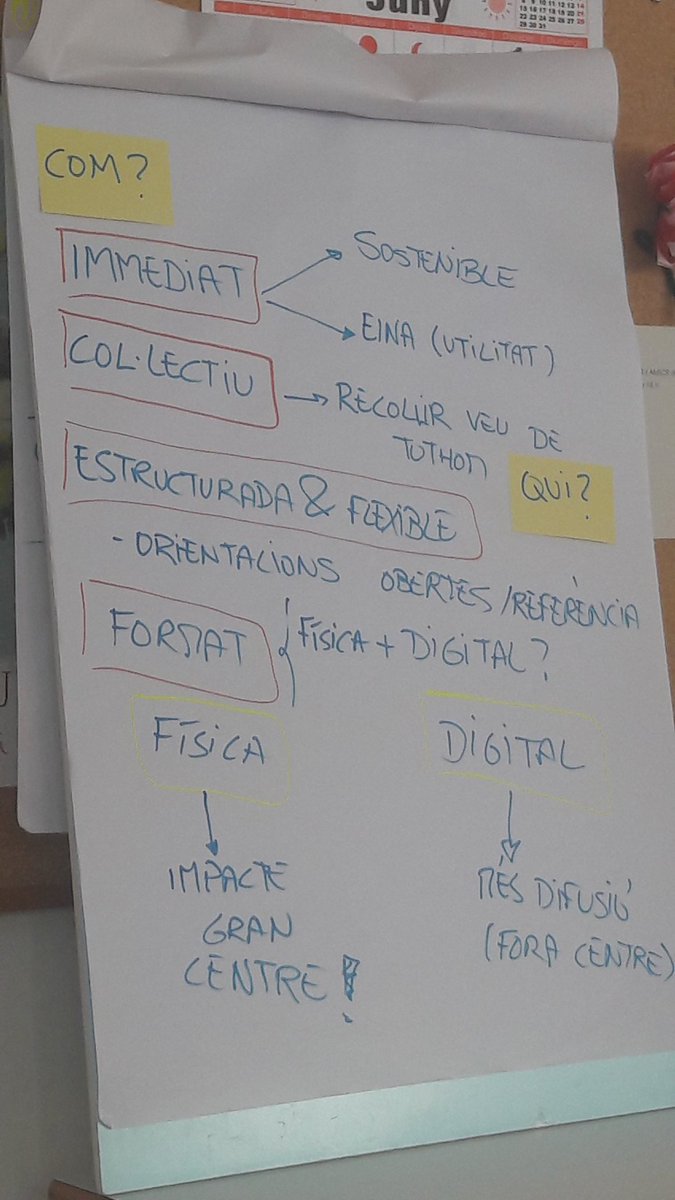 Juny
COM?
IMMEDIAT
SOSTENIBLE
EINA (UTILITAT)
COL·LECTIU
RECOLLIR VEU DE
TOTHOM
QUI?
ESTRUCTURADA & FLEXIBLE
- ORIENTACIONS OBERTES / REFERÈNCIA
FORMAT
FÍSICA + DIGITAL?
FÍSICA
DIGITAL
IMPACTE
GRAN
CENTRE!
MÉS DIFUSIÓ
(FORA CENTRE)